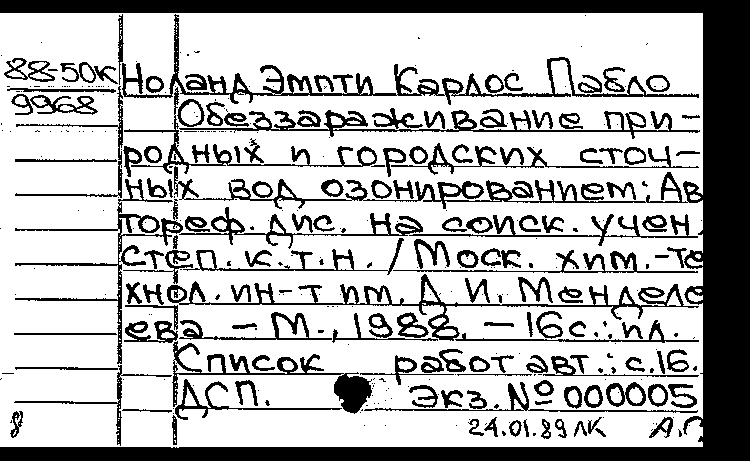 88-50к
9968
Ноланд Эмпти Карлос Пабло
Обеззараживание при-
родных и городских сточ-
ных вод озонированием: Ав
тореф. дис. на соиск. учен.
степ. к.т.н. / Моск. хим.-те
хнол. ин-т им. Д. И. Менделе
ева – М., 1988. – 16с.: ил.
Список работ авт.: с.16.
ДСП. Экз. № 000005
8 24.01.89 ЛК